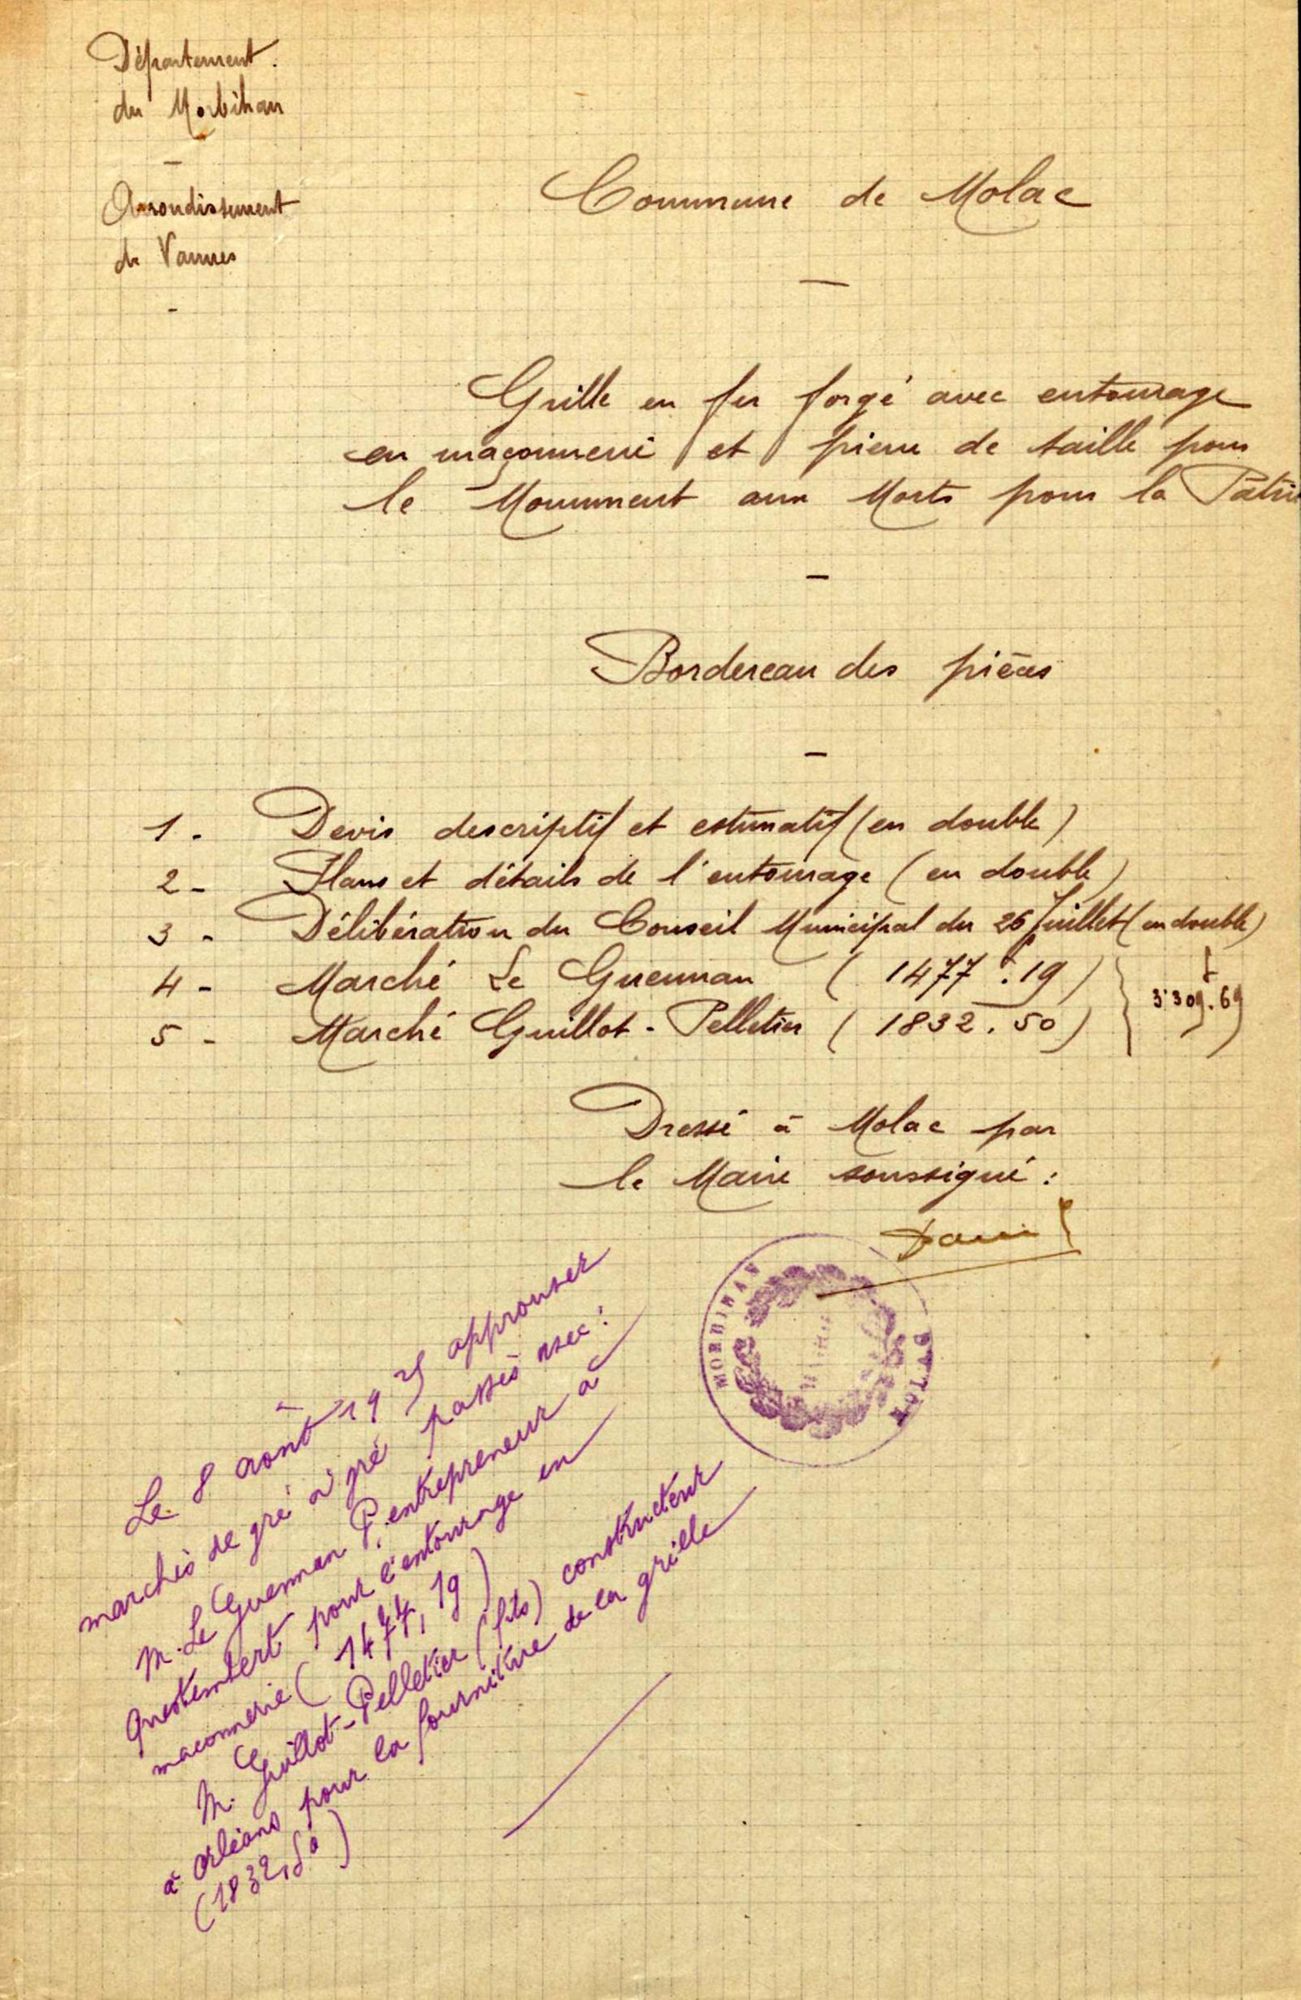 Département
du Morbihan
—
Arrondissement
de Vannes
-
Commune de Molac
—
Grille en fer forgé avec entourage
en maçonnerie et pierre de taille pour
le Monument aux Morts pour la Patrie
-
Bordereau des pièces
-
1 - Devis descriptif et estimatif (en double)
2 - Plans et détails de l'entourage (en double)
3 - Délibération du Conseil Municipal du 26 Juillet (en double)
4 - Marché Le Guennan (1477f.19)
5 - Marché Guillot-Pelletier (1832.50)
3'309f.69
Dressé à Molac par
le Maire soussigné :
MORBIHAN
MOLAC
MAIRIE
Le 8 août 1925 approuver
marchés de gré à gré passés avec :
M. Le Guennan P. entrepreneur à
Questembert pour l'entourage en
maconnerie (1477,19)
M. Guillot-Pelletier (fils) constructeur
à Orléans pour la fourniture de la grille
(1832,50)